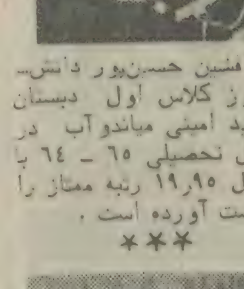 فشین حسین‌پور دانش‌ـ
ز کلاس اول دبستان
ید امینی میاندوآب در
ل تحصیلی ٦٥ ـ ٦٤ با
ل ١٩٫٩٥ رتبه ممتاز را
ست آورده است .
***